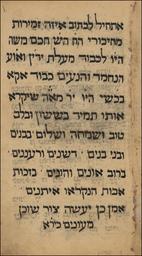 אתחיל לכתוב איזה זמירות
מחיבורי הח השׁ חכם משה
היו לכבוד מעלת ידין ואוע
הנחמד והנעים כבוד אקא
בכשר היו יר מאה שיקרא
אותו תמיד בששון ובלב
טוב ושמחה ושלום בבנים
ובני בנים דשנים ורעננים
ברוב אונים והונים בזכות
אבות הנקראו איתנים
אמן כן יעשה צור שוכן
מעונים כירא